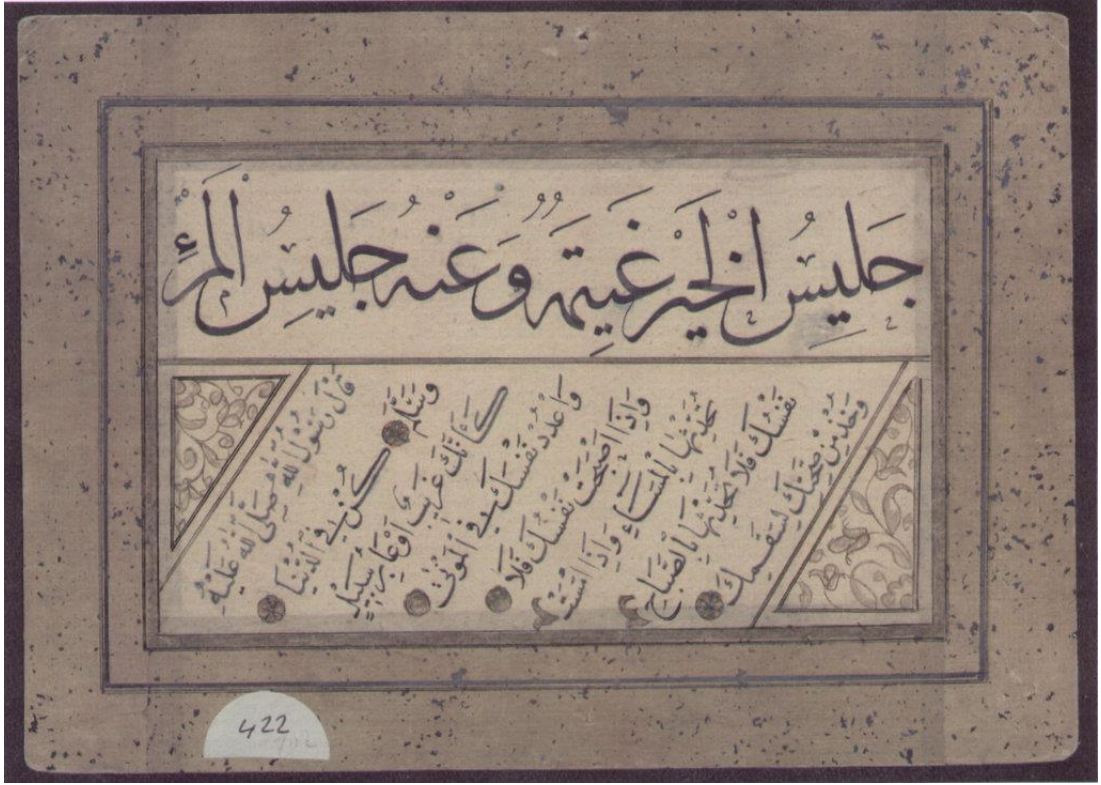 جَليسُ الخَيْرِ غَنيمَةٌ وَعَنْهُ جَليسِ المَرْءِ
قَالَ رَسُولُ اللهِ صَلَّى اللهُ عَلَيْهِ
وَسَلَّمَ كُنْ فِي الدُّنْيَا
كَأَنَّكَ غَرِيبٌ اَوْ عَابِرُ سَبِيلٍ
وَاعْدُدْ نَفْسَكَ فِي الْمَوْتَى
وَاِذَا اَصْبَحَتْ نَفْسُكَ فَلَا
تُحَدِّثْهَا بِالْمَسَاءِ وَاِذَا اَمْسَتْ
نَفْسُكَ فَلَا تُحَدِّثْهَا بِالصَّبَاحِ
وَخُذْ مِنْ صِحَّتِكَ لِسَقَمِكَ
422